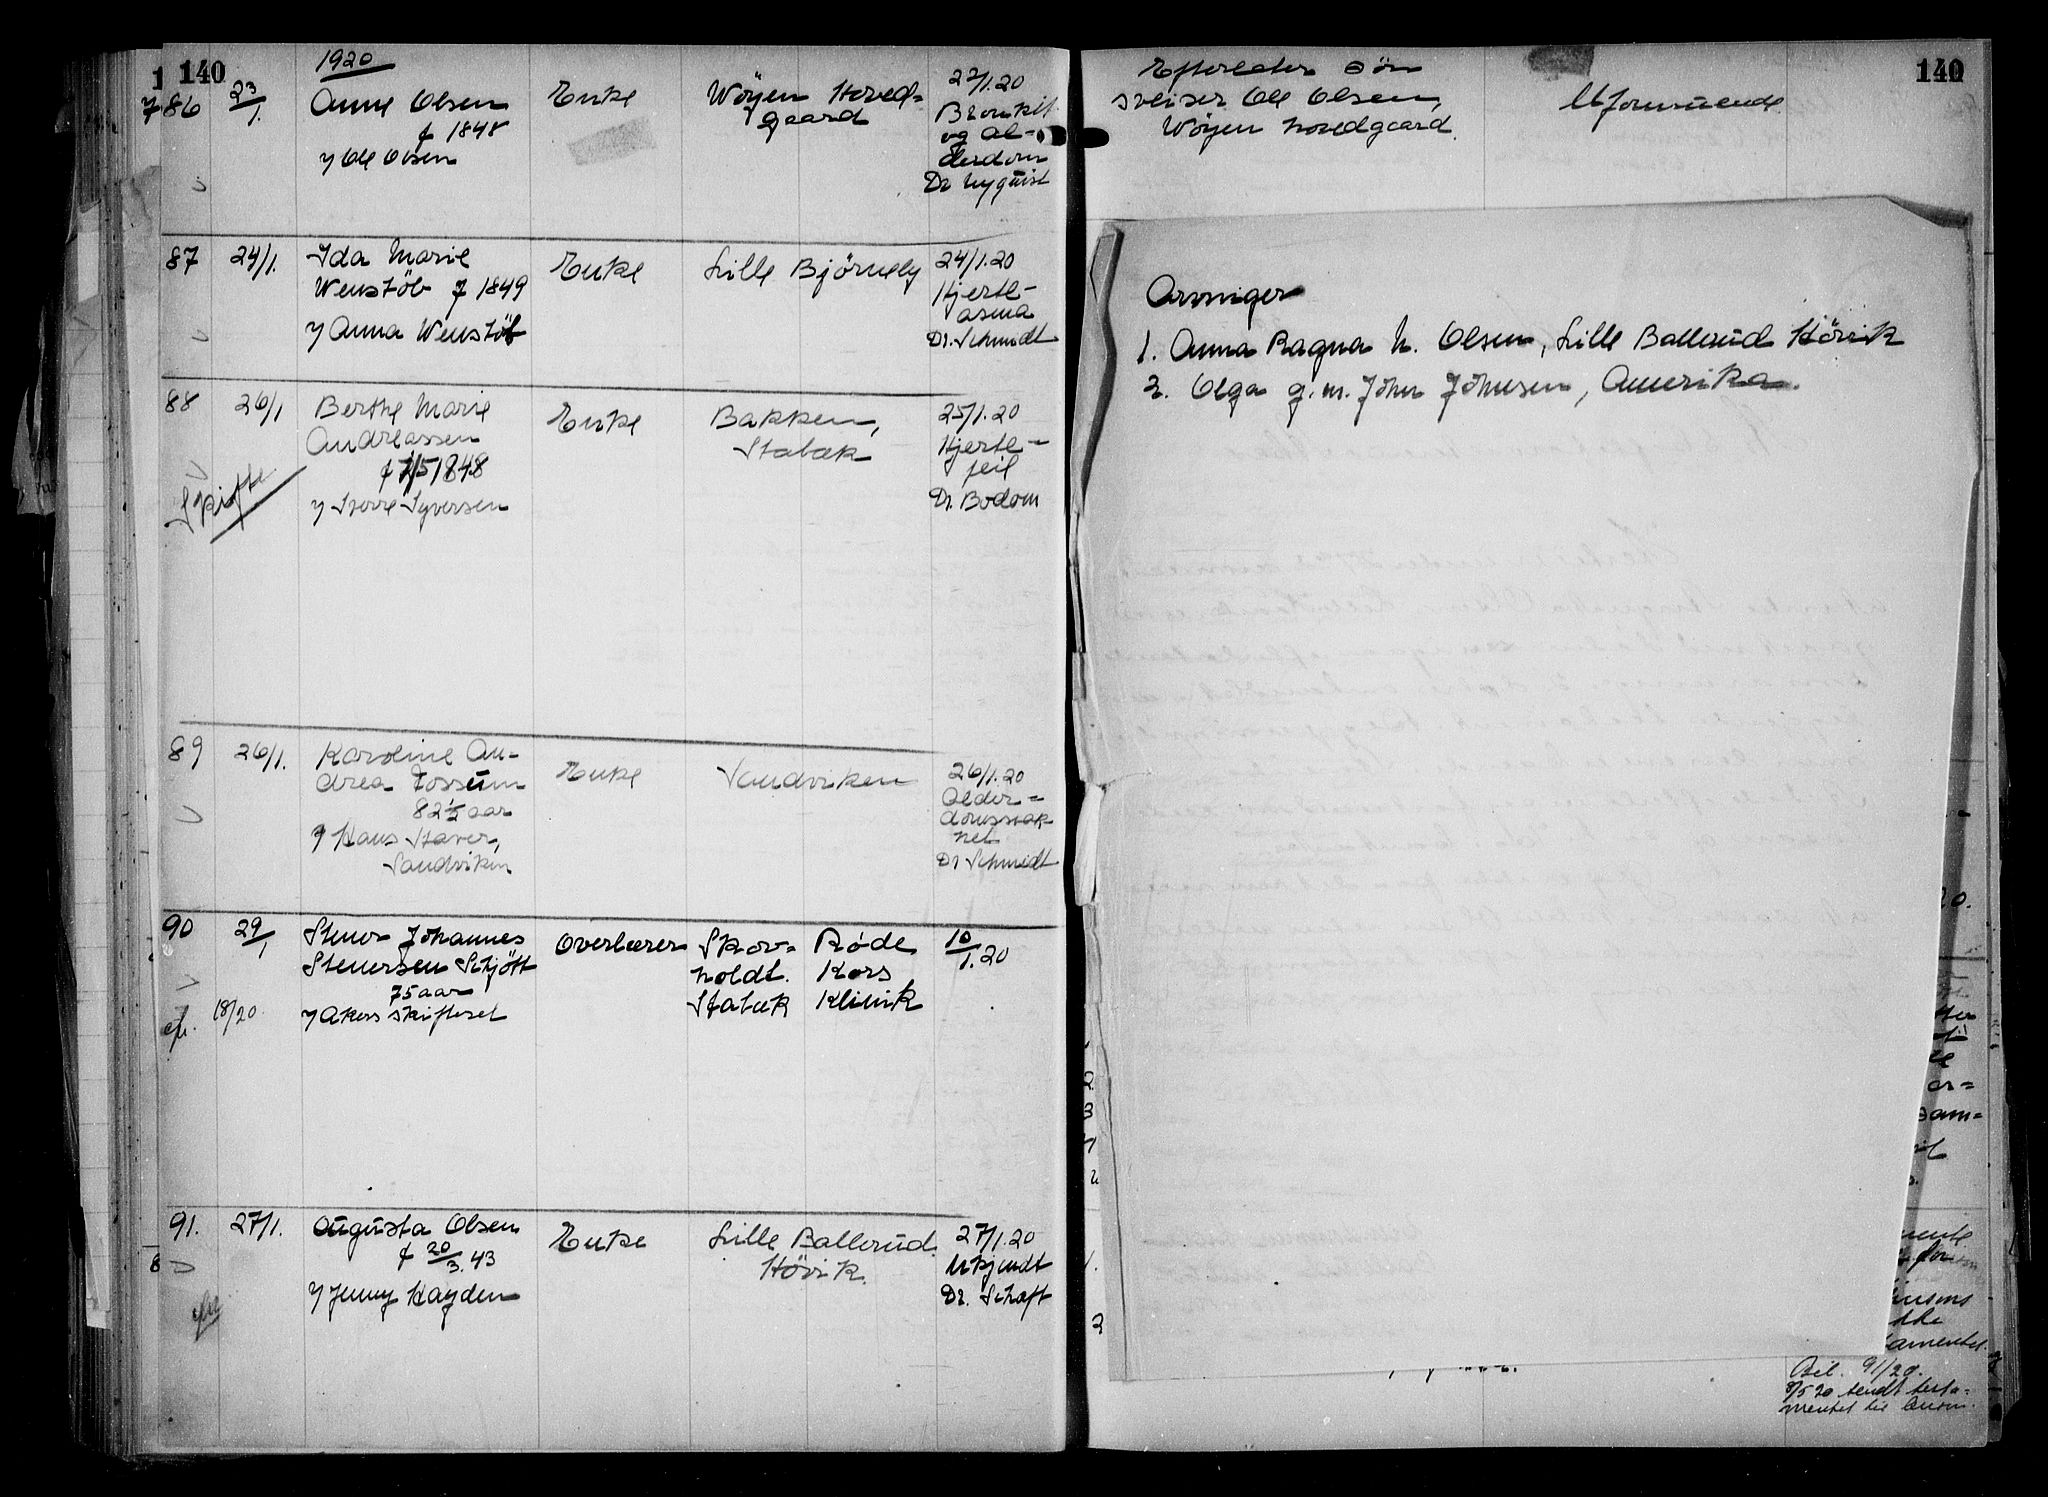 140
1920
86 23/1. Anne Olsen Enke Wøyen Hoved=
gaard
f 1848
v/ Ole Olsen
22/1.20
Bronkit
og al-
derdom
Dr Nyquist
87 24/1. Ida Marie
Wenstøb f 1849
v/ Anna Wenstøb
Enke
Lille Bjørnely
24/1.20
Hjerte-
asma
Dr. Schmidt
88 26/1 Berthe Marie
Andreassen
f 1/5 1848
v/ Syversen
Skifte
Enke
Bakken,
Stabæk
25/1.20
Hjerte-
feil
Dr. Bodom
89 26/1. Karoline An-
drea Fossum
82 1/2 aar
v/ Hans Staver,
Sandviken
Enke
Sandviken
26/1.20
Alder=
Dr Schmidt
90 29/1 Johannes
Stenersen Schjøtt
75 aar
18/20 v/ Akers skifteret
Overlærer
Skov=
holdt.
Stabæk
Røde
Kors
Klinik
10/1.20
91. 27/1. Augusta Olsen
f 20/3.43
v/ Jenny Hayden
Enke
Lille Ballerud
Høvik.
27/1.20
Ukjendt
Dr. Schaft
140
Efterlater søn
sveiser Ole Olsen,
Wøyen hovedgaard.
Uformuende
Arvinger
1. Anna Ragna N. Olsen, Lille Ballerud Høvik
2. Olga g.m. John Johnsen, Amerika.
Bil. 91/20.
8/5 20 sendt testa=
mentet til